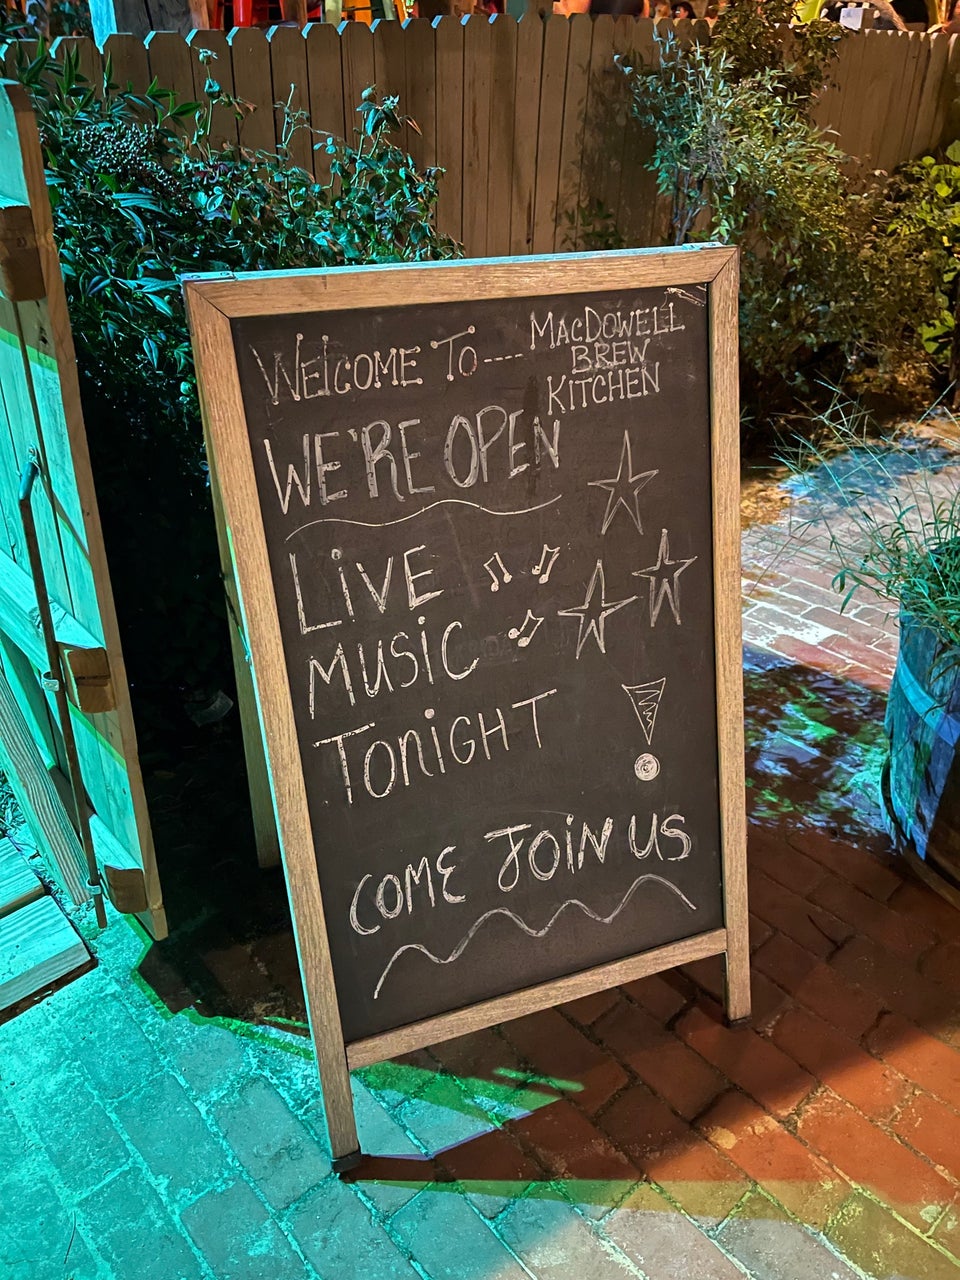 WELCOME TO---- MACDOWELL
BREW
KITCHEN
WE'RE OPEN
LiVE
MUSiC
TONiGHT
COME JOiN US